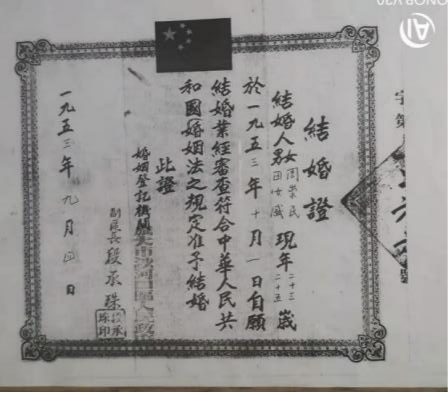 結婚證
結婚人 男 女 現年 二十三 二十五 歲
於一九五三年十月一日自願
結婚業經審查符合中華人民共
和國婚姻法之規定准予結婚
此證
婚姻登記機關
副區長 段承珠
一九五三年九月四日
AI